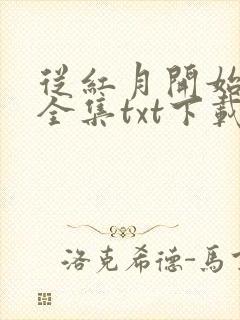 從紅月開始
全集txt下載
洛克希德-馬丁